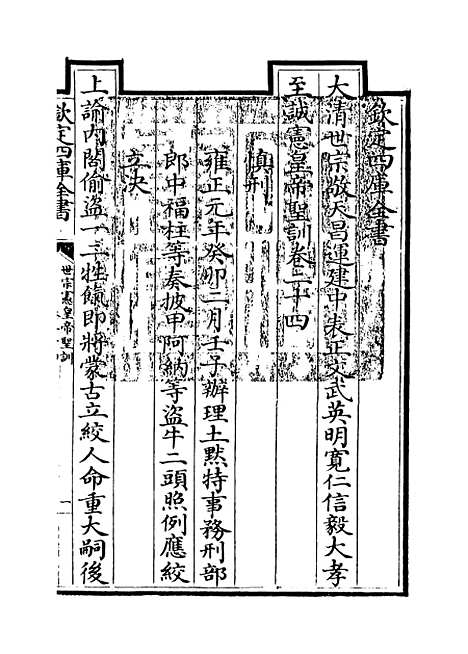 欽定四庫全書
大清世宗敬天昌運建中表正文武英明寬仁信毅大孝
至誠憲皇帝聖訓卷二十四
慎刑
雍正元年癸卯二月壬子辦理土黙特事務刑部
郎中福柱等奏披甲阿納等盜牛二頭照例應絞
立決
上諭内閣偷盜一二牲餼即將蒙古立絞人命重大嗣後
欽定四庫全書
世宗憲皇帝聖訓
一